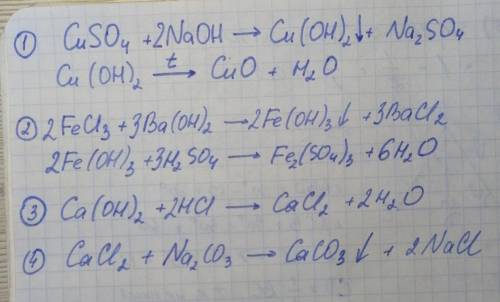 ① CuSO₄ + 2NaOH → Cu(OH)₂↓ + Na₂SO₄
Cu(OH)₂ —t→ CuO + H₂O
② 2FeCl₃ + 3Ba(OH)₂ → 2Fe(OH)₃↓ + 3BaCl₂
2Fe(OH)₃ + 3H₂SO₄ → Fe₂(SO₄)₃ + 6H₂O
③ Ca(OH)₂ + 2HCl → CaCl₂ + 2H₂O
④ CaCl₂ + Na₂CO₃ → CaCO₃↓ + 2NaCl